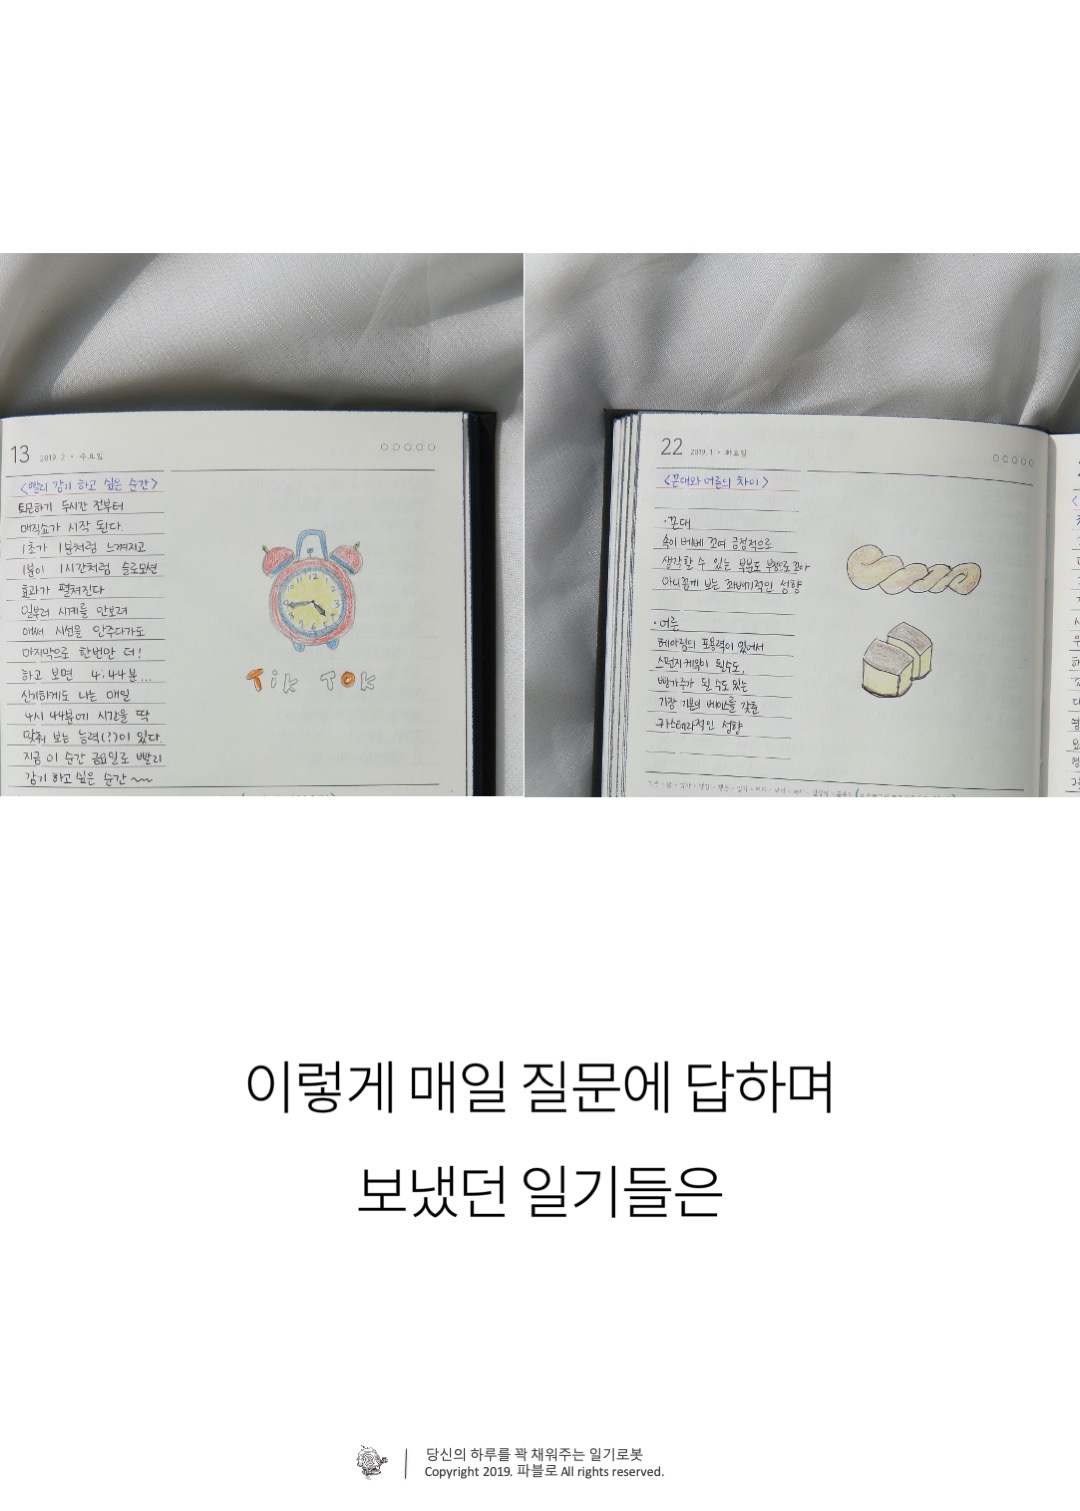 13 2019. 2 · 수요일
<빨리 감기 하고 싶은 순간>
퇴근하기 두시간 전부터
매직쇼가 시작 된다.
1초가 1분처럼 느껴지고
1분이 1시간처럼 슬로모션
효과가 펼쳐진다
일부러 시계를 안보려
애써 시선을 안주다가도
마지막으로 한번만 더!
하고 보면 4:44분...
신기하게도 나는 매일
4시 44분에 시간을 딱
맞춰 보는 능력(?)이 있다.
지금 이 순간 금요일로 빨리
감기 하고 싶은 순간 ~~
12
3
6
9
Tik TOK
22 2019. 1 · 화요일
<꼰대와 어른의 차이>
·꼰대
속이 베베 꼬여 긍정적으로
생각할 수 있는 부분도 부정으로 꼬아
아니꼽게 보는 꽈배기적인 성향
·어른
헤아림의 포용력이 있어서
스펀지케익이 될수도,
빵가루가 될 수도 있는
가장 기본의 베이스를 갖춘
카스테라적인 성향
이렇게 매일 질문에 답하며
보냈던 일기들은
당신의 하루를 꽉 채워주는 일기로봇
Copyright 2019. 파블로 All rights reserved.